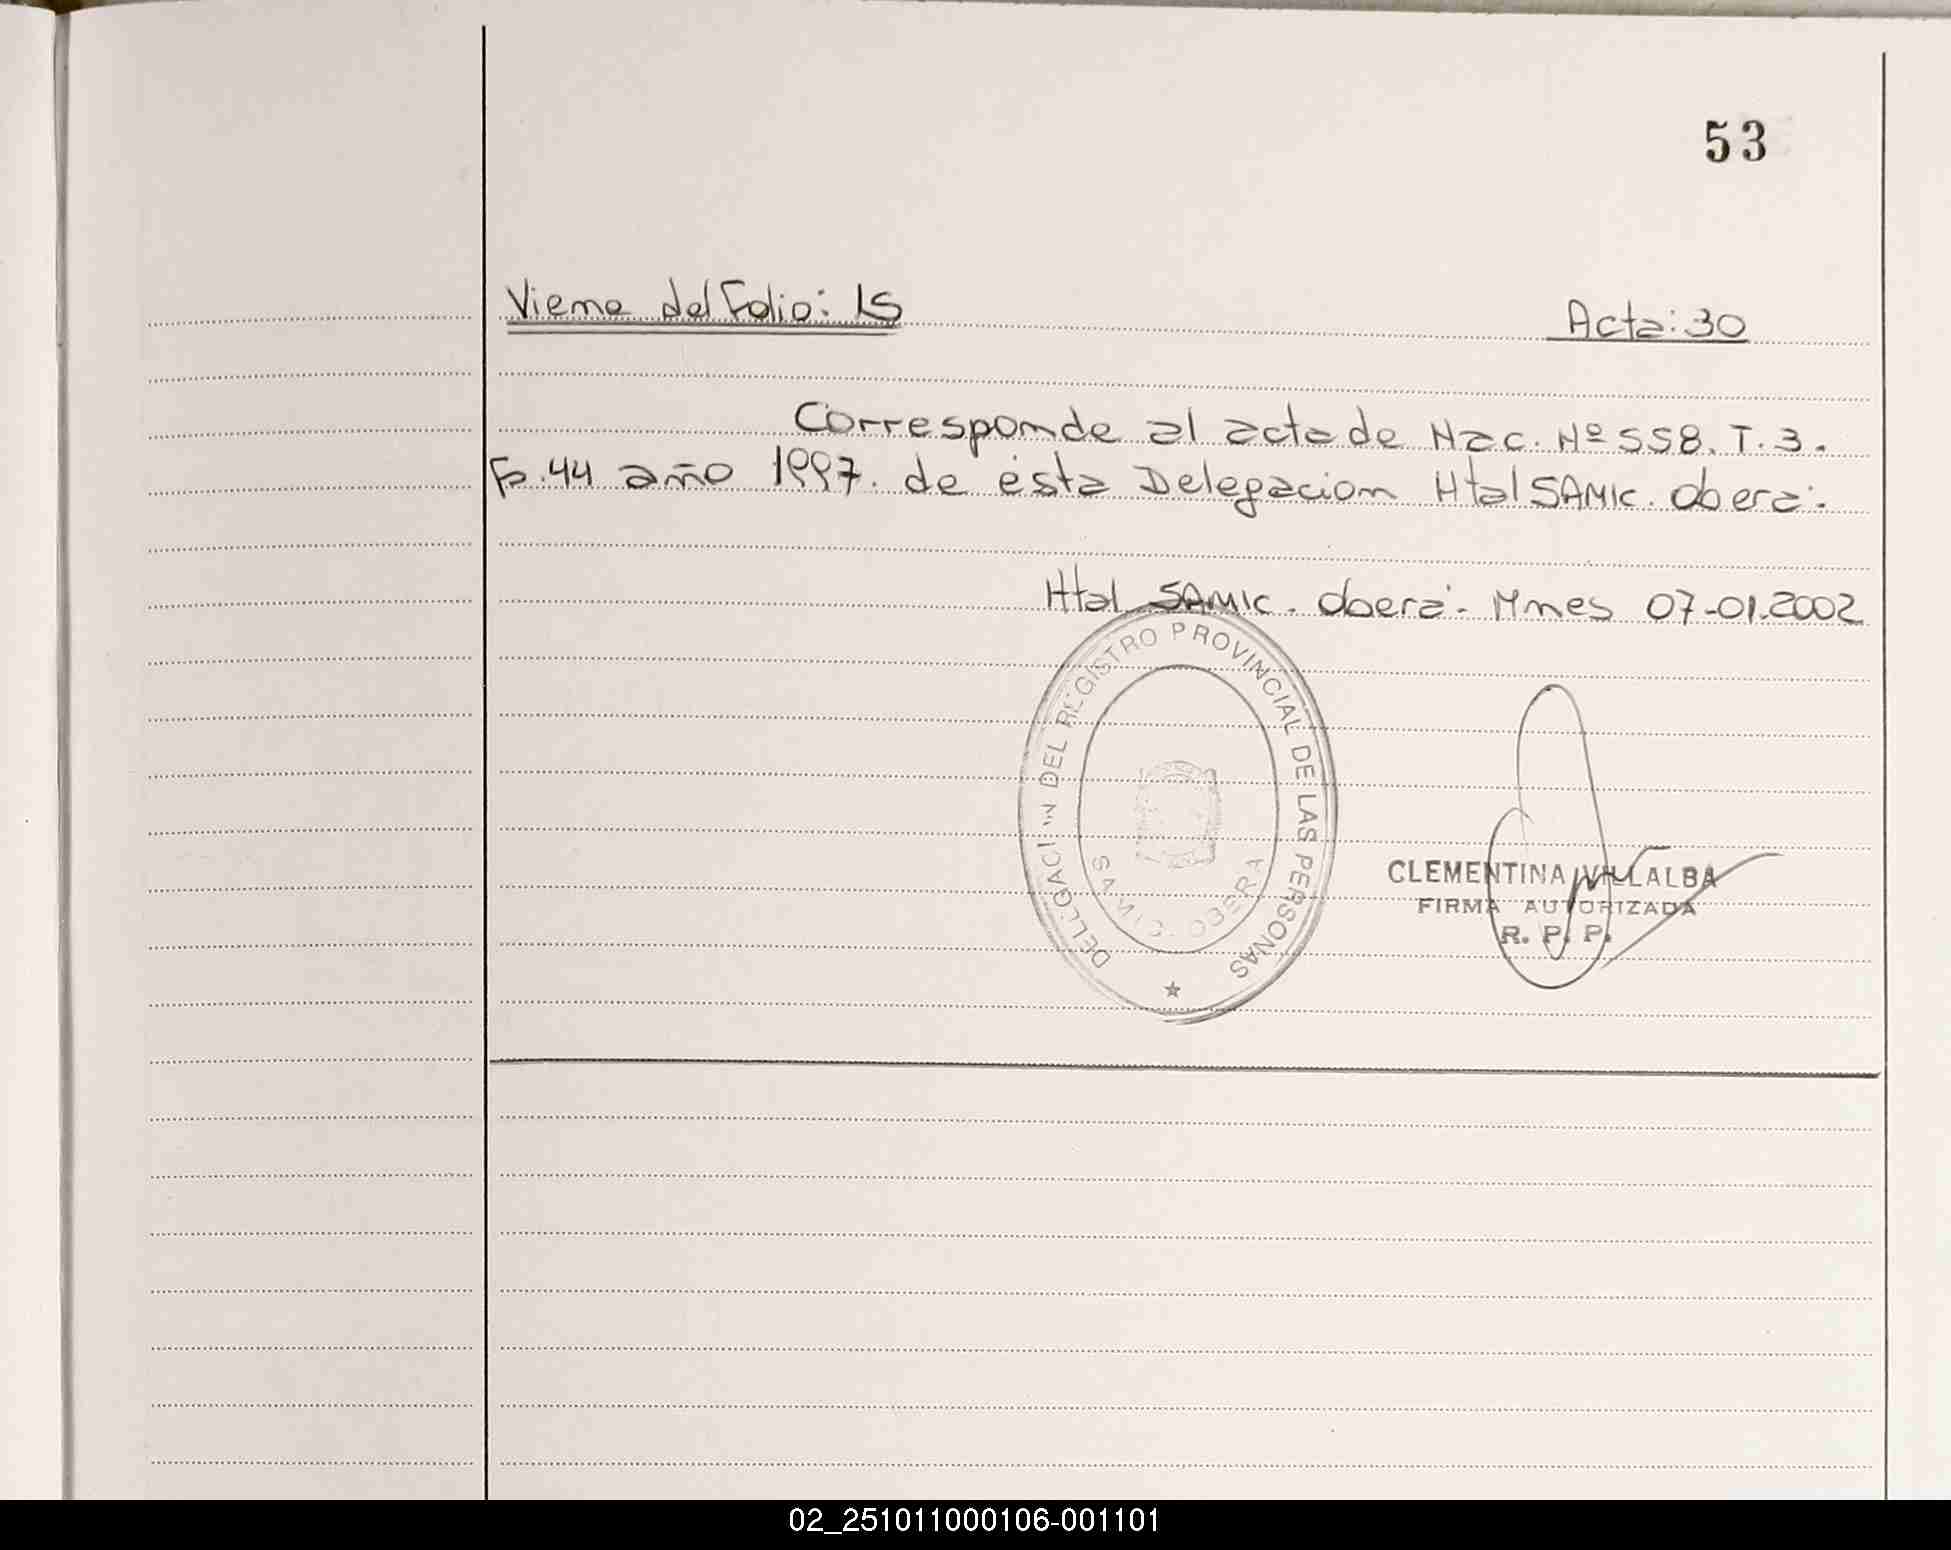 53
Viene del Folio: 15
Acta: 30
Corresponde al acta de Nac. Nº 558. T. 3.
Fº. 44 año 1997. de ésta Delegacion Htal SAMIC. Oberá.
Htal SAMIC. Oberá. Mnes 07-01.2002
DELEGACION DEL REGISTRO PROVINCIAL DE LAS PERSONAS
SAMIC - OBERA
CLEMENTINA VILLALBA
FIRMA AUTORIZADA
R. P. P.
02_251011000106-001101